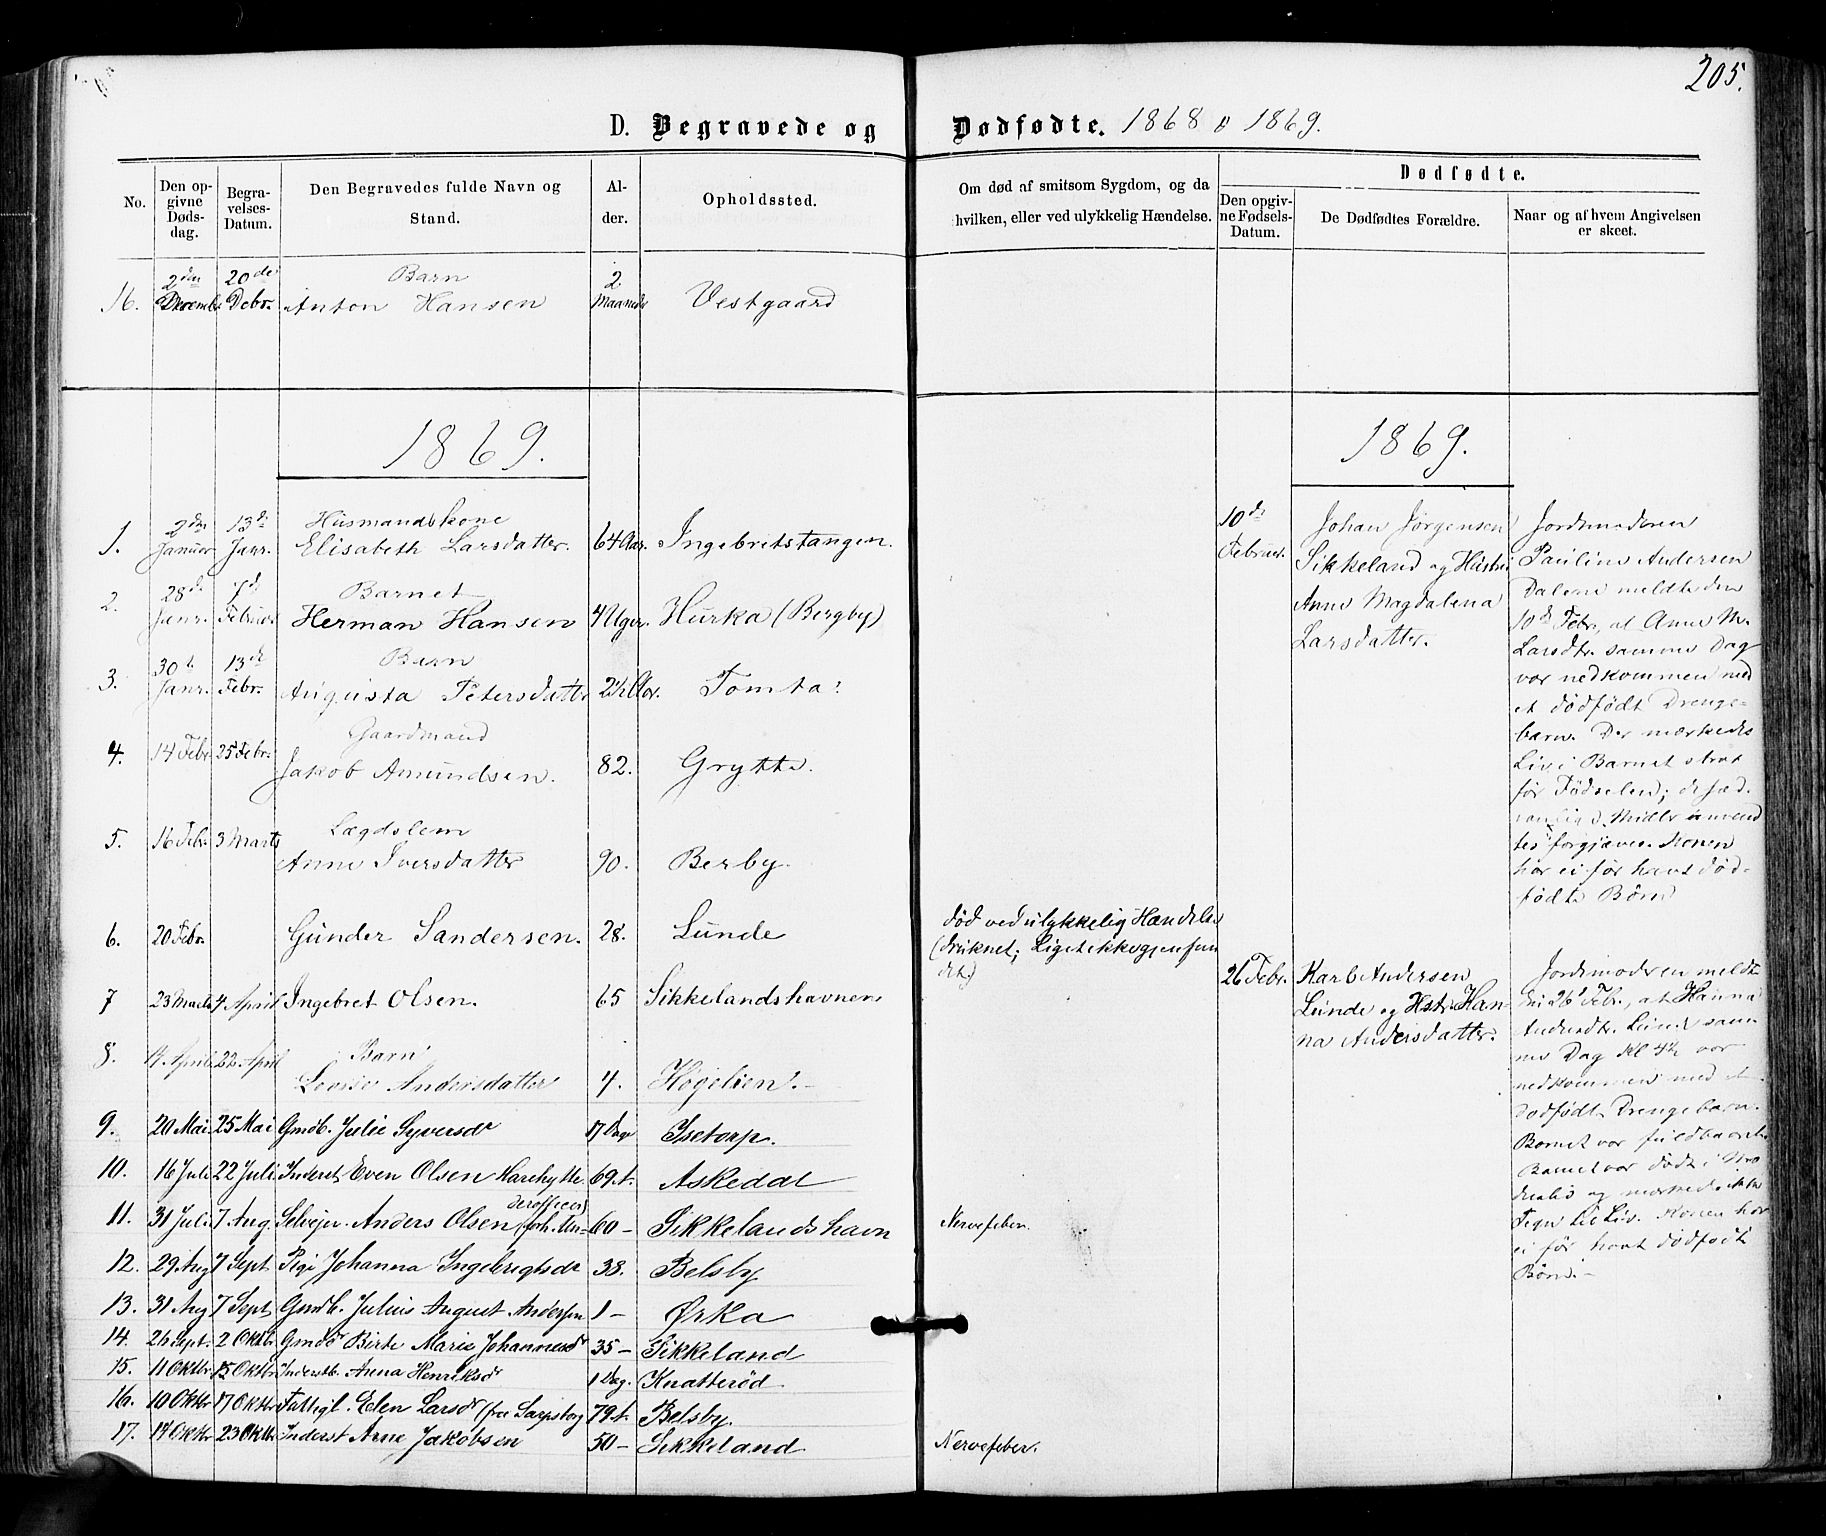 205.
D. Begravede og Dødfødte. 1868 o 1869.
No.
Den opgivne Dødsdag.
Begravelses-Datum.
Den Begravedes fulde Navn og Stand.
Alder.
Opholdssted.
Om død af smitsom Sygdom, og da hvilken, eller ved ulykkelig Hændelse.
Dødfødte.
Den opgivne Fødsels-Datum.
De Dødfødtes Forældre.
Naar og af hvem Angivelsen er skeet.
2den 20de Barn 2
16. Decembr. Debr. Anton Hansen Maaneder Vestgaard
1869.
2den 13de Husmandskone
1. Januar Janr. Elisabeth Larsdatter. 64 Aar. Ingebretstangen.
28de 7de Barnet
2. Janr. Februar Herman Hansen 4 Uger. Hurka (Bergby)
30te 13de Barn
3. Janr. Febr. Augusta Petersdatter 2½ Aar. Tomta
Gaardmand
4. 14 Febr 25 Febr. Jakob Amundsen. 82. Grytte.
Lægdslem
5. 16 Febr. 3 Marts Anne Iversdatter 90. Berby.
6. 20 Febr. Gunder Sandersen. 28. Lunde
død ved ulykkelig Hændelse
(druknet; Liget ikke gjenfun
det.)
7 23 Marts 4 April Ingebret Olsen. 65 Sikkelandshavnen
Barn
8. 14 April 22 April Lovise Andersdatter 4. Høgelien.
9. 20 Mai 25 Mai Gmdb. Julie Syversdr 17 Dage Isetorp.
10. 16 Juli 22 Juli Inderst Even Olsen Harehytte 69 A. Askedal
11. 31 Juli 7 Aug Selvejer Anders Olsen (forh. Un-
derofficer) 60 - Sikkelandshavn Nervefeber.
12. 29 Aug 7 Sept. Pige Johanna Ingebrigtsdr 38. Belsby
13. 31 Aug 7 Sept Gmdb. Julius August Andersen 1 - Ørka
14. 26 Sept. 2 Oktbr. Gmdd Birte Marie Johannesdr 35 - Sikkeland
15. 11 Oktbr 15 Oktbr Inderstb. Anna Henriksdr 1 Dag. Knatterød
16. 10 Oktbr 17 Oktbr Fattigl. Elen Larsdr (fra Sarpsborg 79 A. Belsby.
17. 14 Oktbr 23 Oktbr. Inderst Arne Jakobsen 50 - Sikkeland Nervefeber.
1869.
10de
Februar.
Johan Jørgensen
Sikkeland og Hustru
Anne Magdalena
Larsdatter.
Jordemoderen
Pauline Andersen
Dalene meldte den
10de Febr., at Anne M.
Larsdtr. samme Dag
var nedkommen med
et dødfødt Drenge-
barn. Der mærkedes
Liv i Barnet strax
før Fødselen; de sæd-
vanlige Midler anvend
tes forgjæves. Konen
har ei før havt død-
fødte Børn
26 Febr.
Karl Andersen
Lunde og Hstr. Han-
na Andersdatter.
Jordemoderen meldte
den 26 Febr., at Hanna
Andersdtr. Lunde sam-
me Dag Kl 4½ var
nedkommen med et
dødfødt Drengebarn.
Barnet var fuldbaaret.
Barnet var dødt i
og mærkedes ikke
Tegn til Liv. Konen har
ei før havt dødfødte
Børn. -